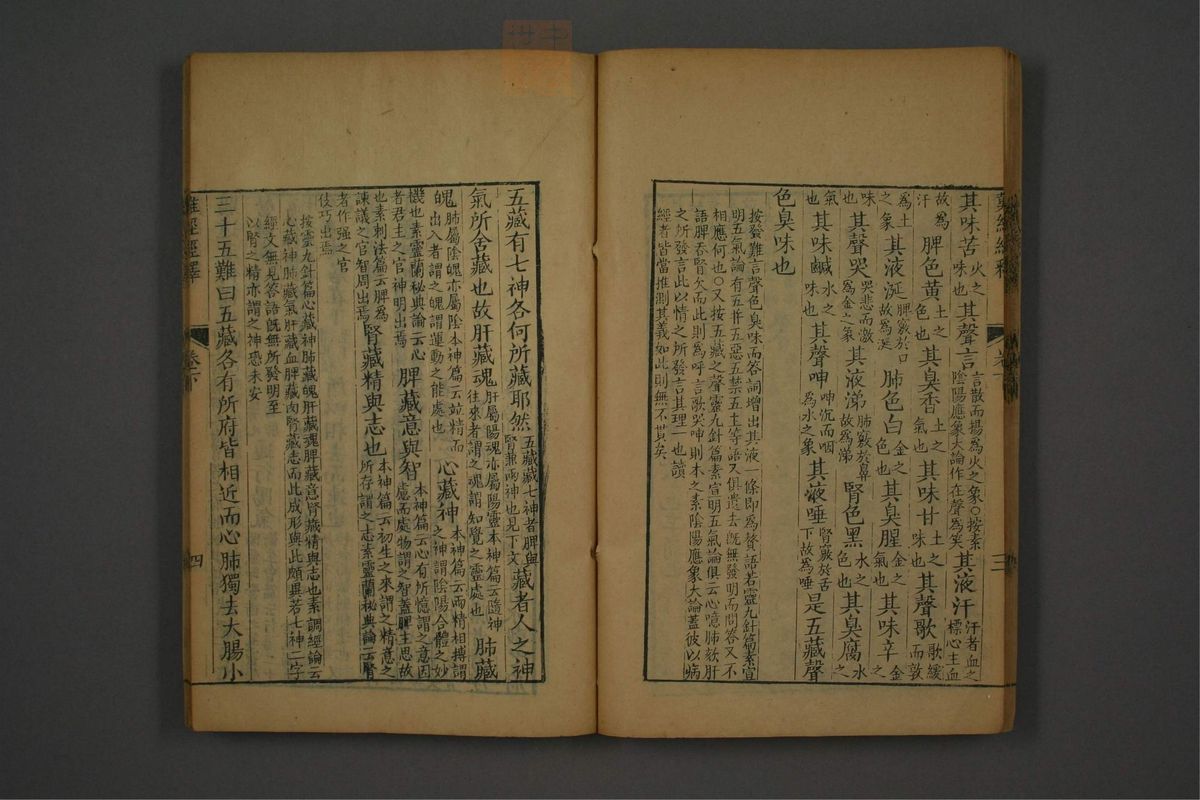 其味苦火之味也其聲言言散而揚為火之象○按素陰陽應象大論作在聲為笑其液汗汗者血之標心主血
故為汗脾色黃土之色也其臭香土之氣也其味甘土之味也其聲歌歌緩而敦
為土之象其液涎脾竅於口故為涎肺色白金之色也其臭腥金之氣也其味辛金之
味也其聲哭哭悲而激為金之象其液涕肺竅於鼻故為涕腎色黑水之色也其臭腐水之
氣也其味鹹水之味也其聲呻呻沉而咽為水之象其液唾腎竅於舌下故為唾是五藏聲
色臭味也
按發難言聲色臭味而答詞增出其液一條即為贅語若靈九針篇素宣
明五氣論有五并五惡五禁五土等語又俱遺去旣無發明而問答又不
相應何也○又按五藏之聲靈九針篇素宣明五氣論俱云心噫肺欬肝
語脾吞腎欠而此則為呼言歌哭呻則本之素陰陽應象大論蓋彼以病
之所發言此以情之所發言其理一也讀
經者皆當推測其義如此則無不貫矣
難經經釋
卷下
三
五藏有七神各何所藏耶然五藏藏七神者脾與腎兼兩神也見下文藏者人之神
氣所舍藏也故肝藏魂肝屬陽魂亦屬陽靈本神篇云隨神往來者謂之魂謂知覺之靈處也肺藏
魄肺屬陰魄亦屬陰本神篇云竝精而出入者謂之魄謂運動之能處也心藏神本神篇云兩精相搏謂之神謂陰陽合體之妙
機也素靈蘭秘典論云心者君主之官神明出焉脾藏意與智本神篇云心有所憶謂之意因慮而處物謂之智蓋脾主思故
也素刺法篇云脾為諫議之官智周出焉腎藏精與志也本神篇云初生之來謂之精意之所存謂之志素靈蘭秘典論云腎
者作强之官伎巧出焉
按靈九針篇心藏神肺藏魄肝藏魂脾藏意腎藏精與志也素調經論云
心藏神肺藏氣肝藏血脾藏肉腎藏志而此成形與此頗異若七神二字
經文無見答語旣無所發明至
以腎之精亦謂之神恐未安
三十五難曰五藏各有所府皆相近而心肺獨去大腸小
難經經釋
卷下
四